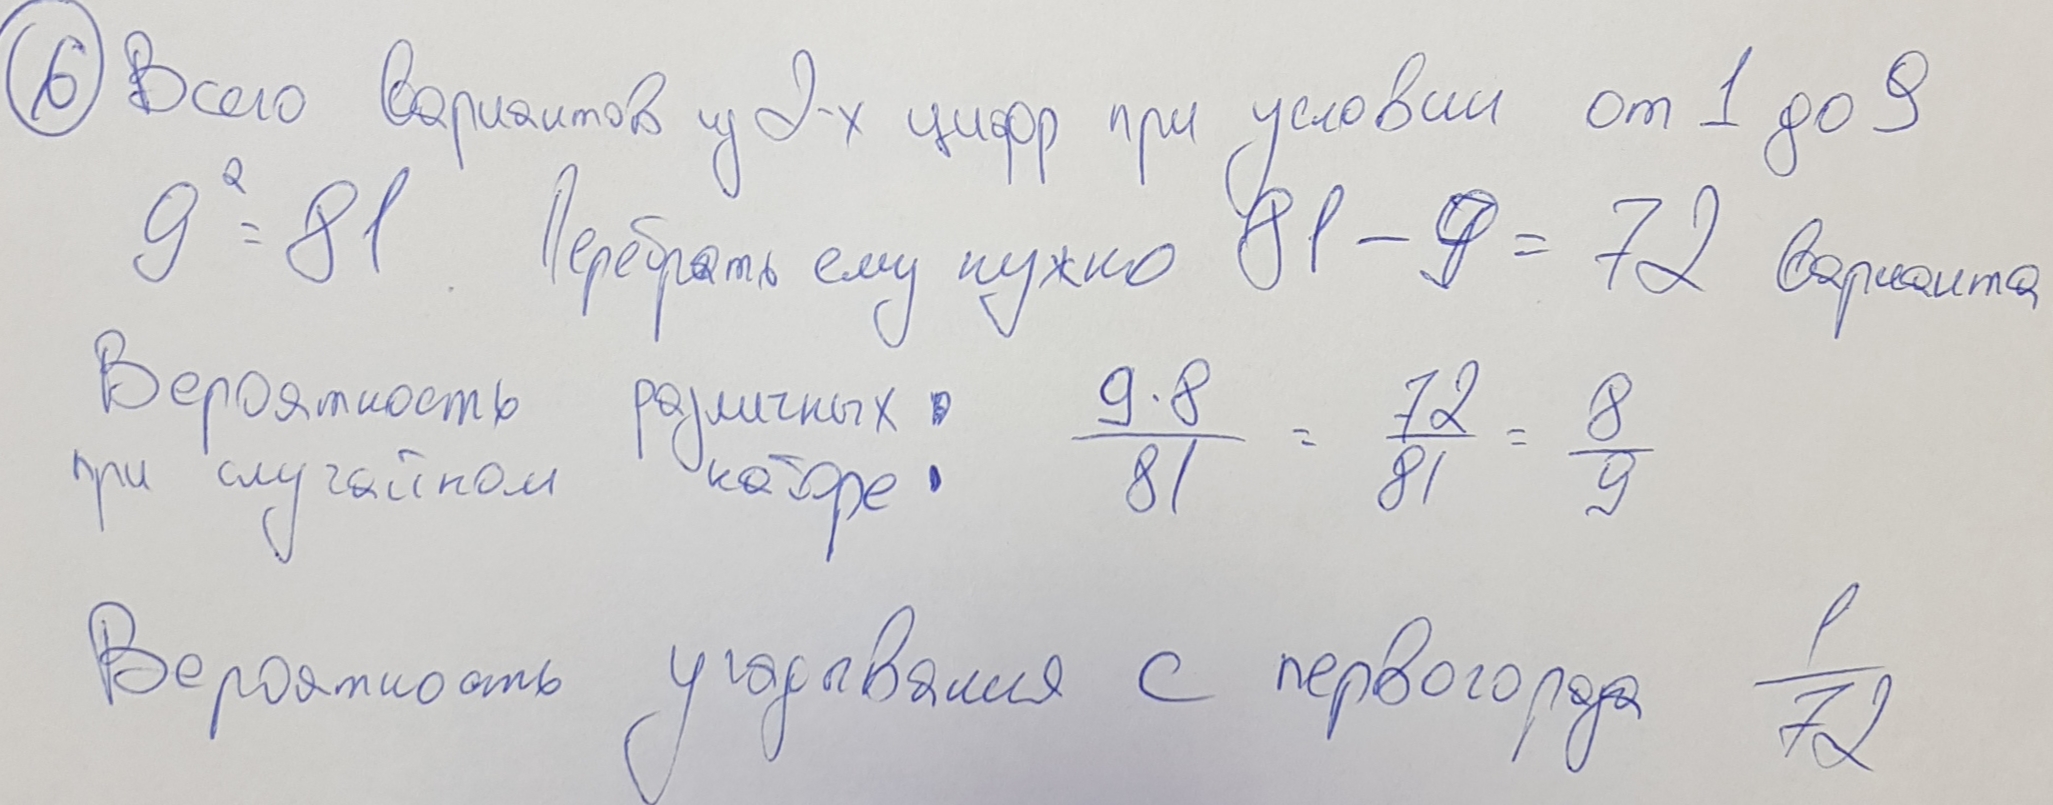 6 Всего вариантов из 2-х цифр при условии от 1 до 9
9² = 81 Перебрать ему нужно 81 - 9 = 72 варианта
Вероятность различных : 9·8/81 = 72/81 = 8/9
при случайном наборе :
Вероятность угадывания с первого рада 1/72